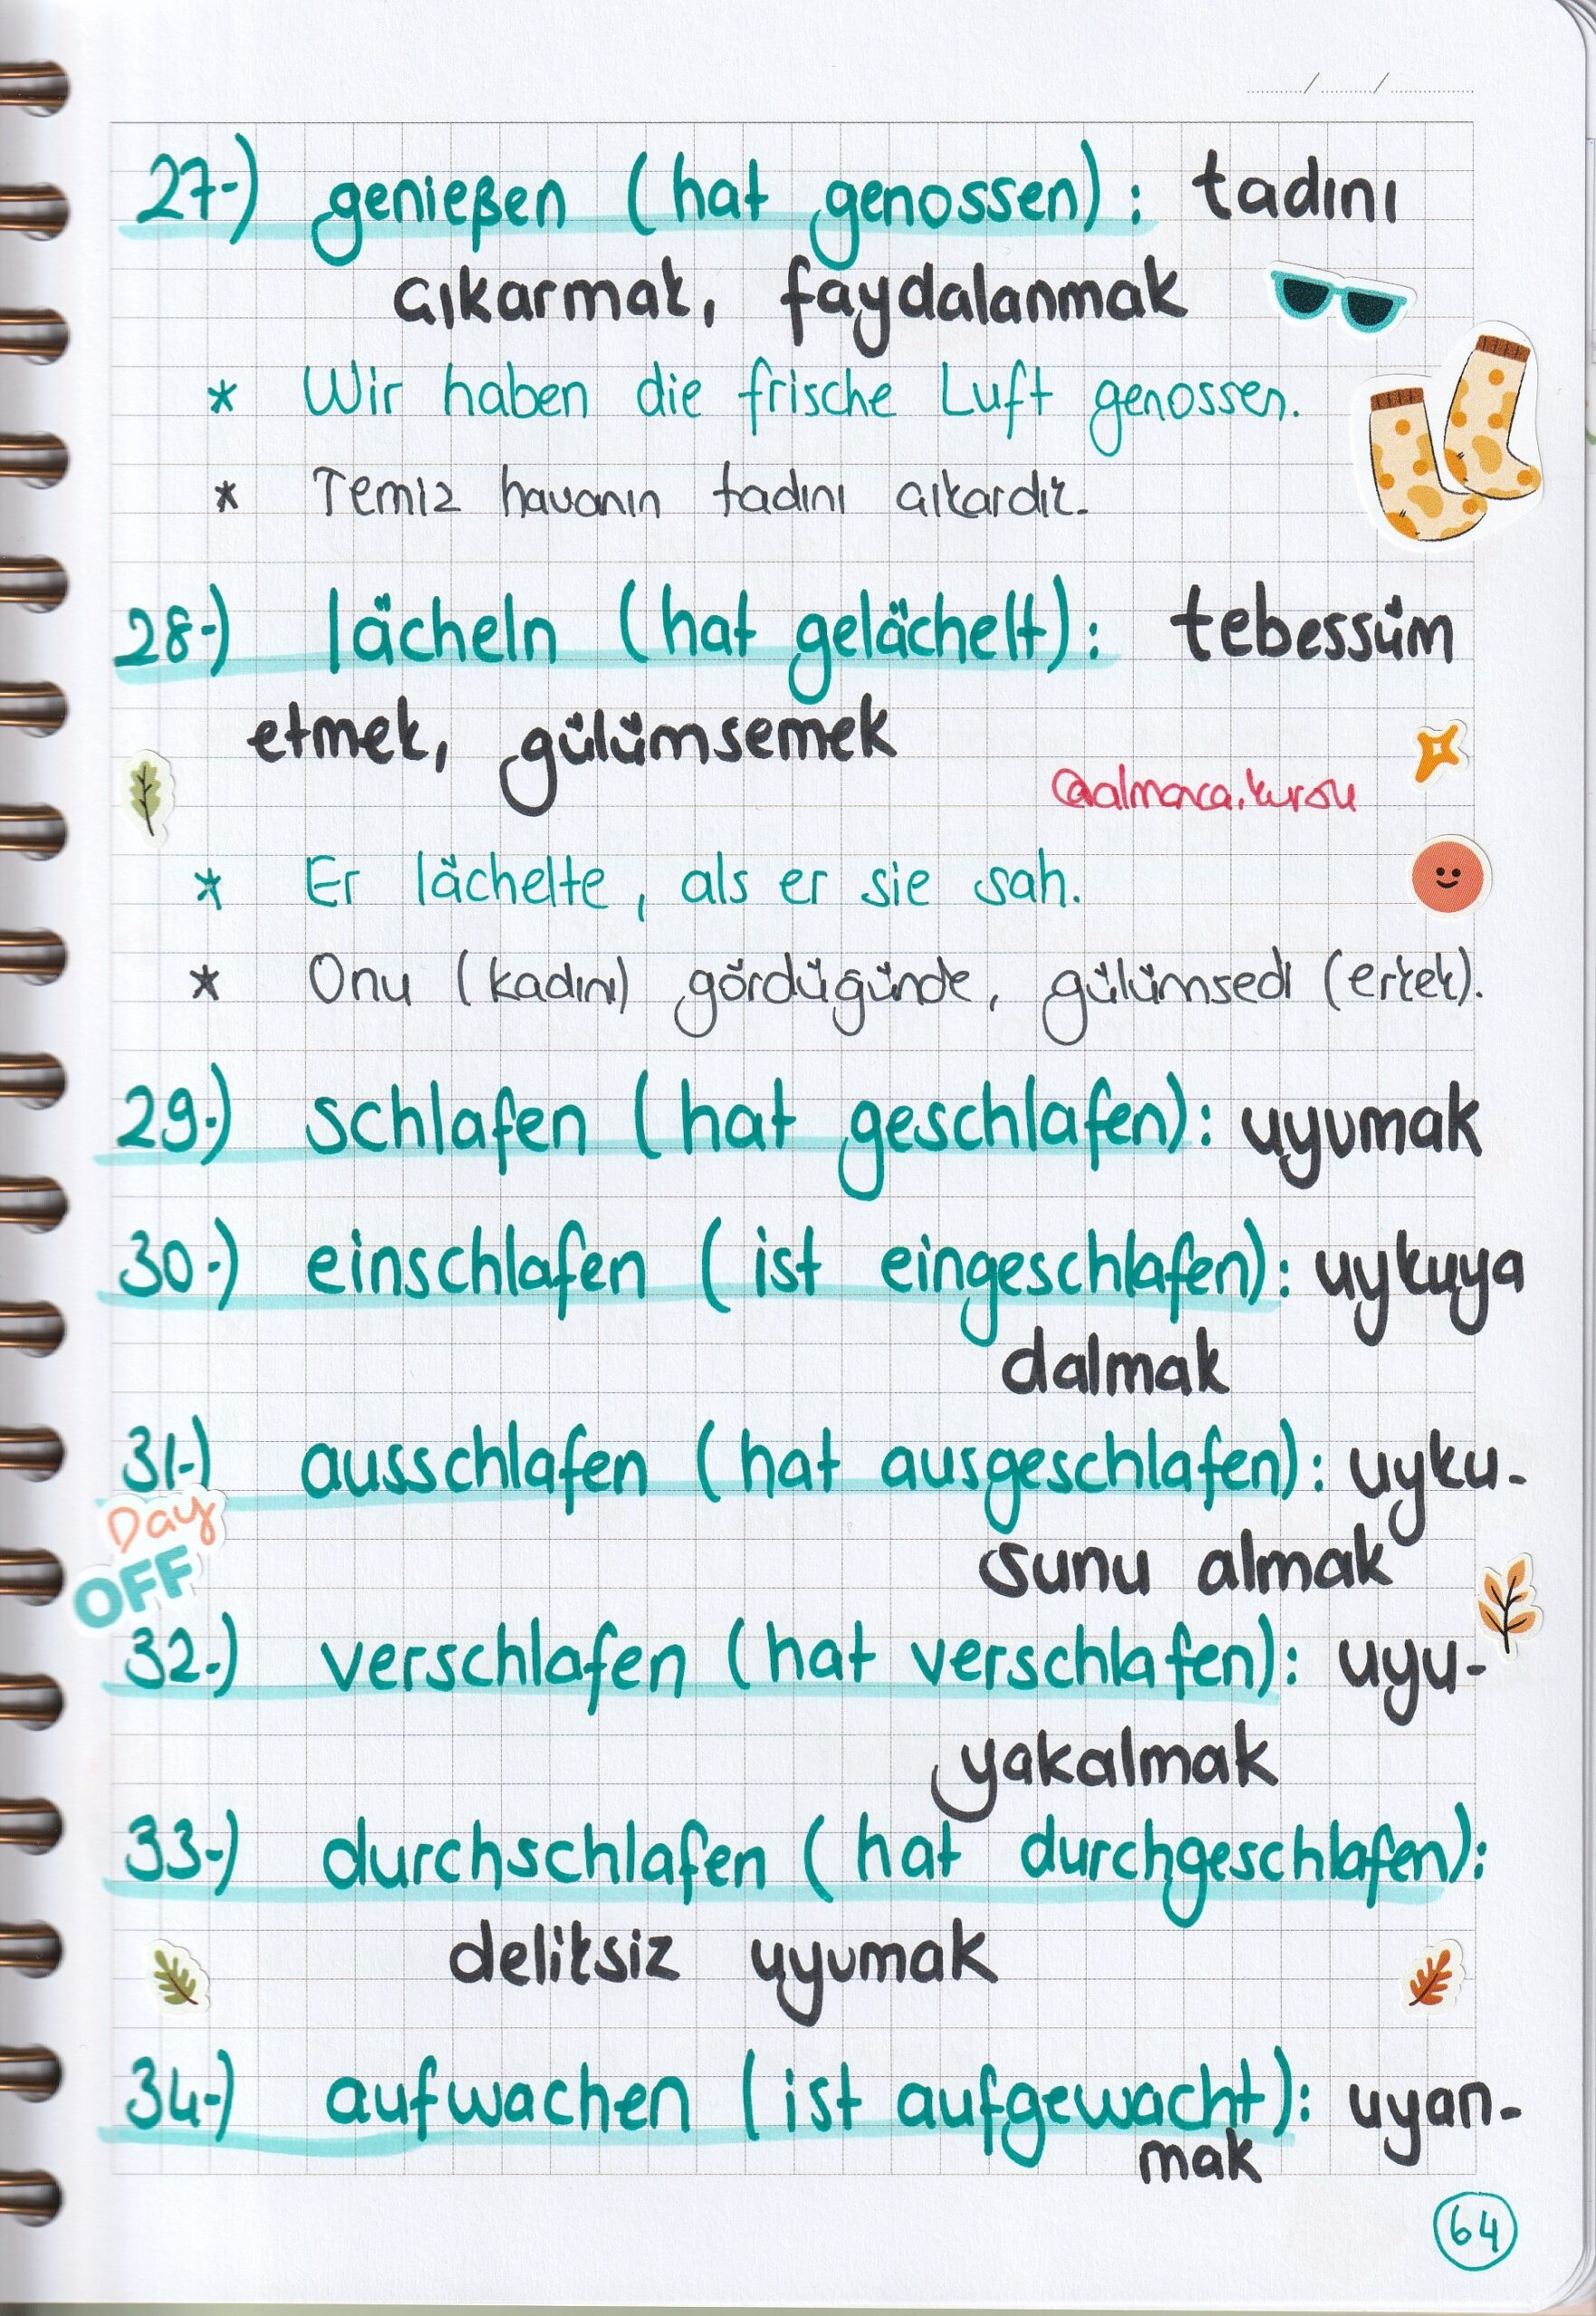 27-) genießen (hat genossen): tadını
çıkarmak, faydalanmak
* Wir haben die frische Luft genossen.
* Temiz havanın tadını çıkardık.
28-) lächeln (hat gelächelt): tebessüm
etmek, gülümsemek
@almanca.kursu
* Er lächelte, als er sie sah.
* Onu (kadını) gördüğünde, gülümsedi (erkek).
29-) schlafen (hat geschlafen): uyumak
30-) einschlafen (ist eingeschlafen): uykuya
dalmak
31-) ausschlafen (hat ausgeschlafen): uyku-
sunu almak
Day
OFF
32-) verschlafen (hat verschlafen): uyu-
yakalmak
33-) durchschlafen (hat durchgeschlafen):
deliksiz uyumak
34-) aufwachen (ist aufgewacht): uyan-
mak
64